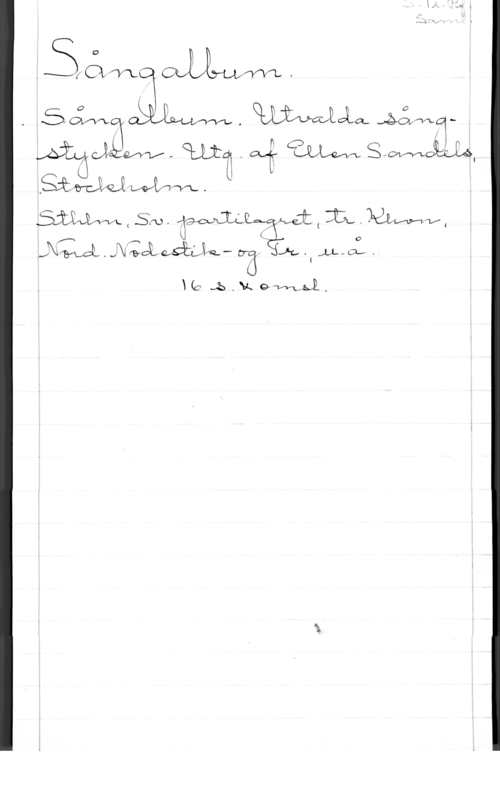 Saml
Sångalbum.
Sångalbum. Utvalda sång-
stycken. Utg. af Ellen Sandels,
Stockholm.
Sthlm, Sv. partilagret, tr. Khvn,
Nord. Nodestik- og Tr., u.å.
16 s. + omsl.